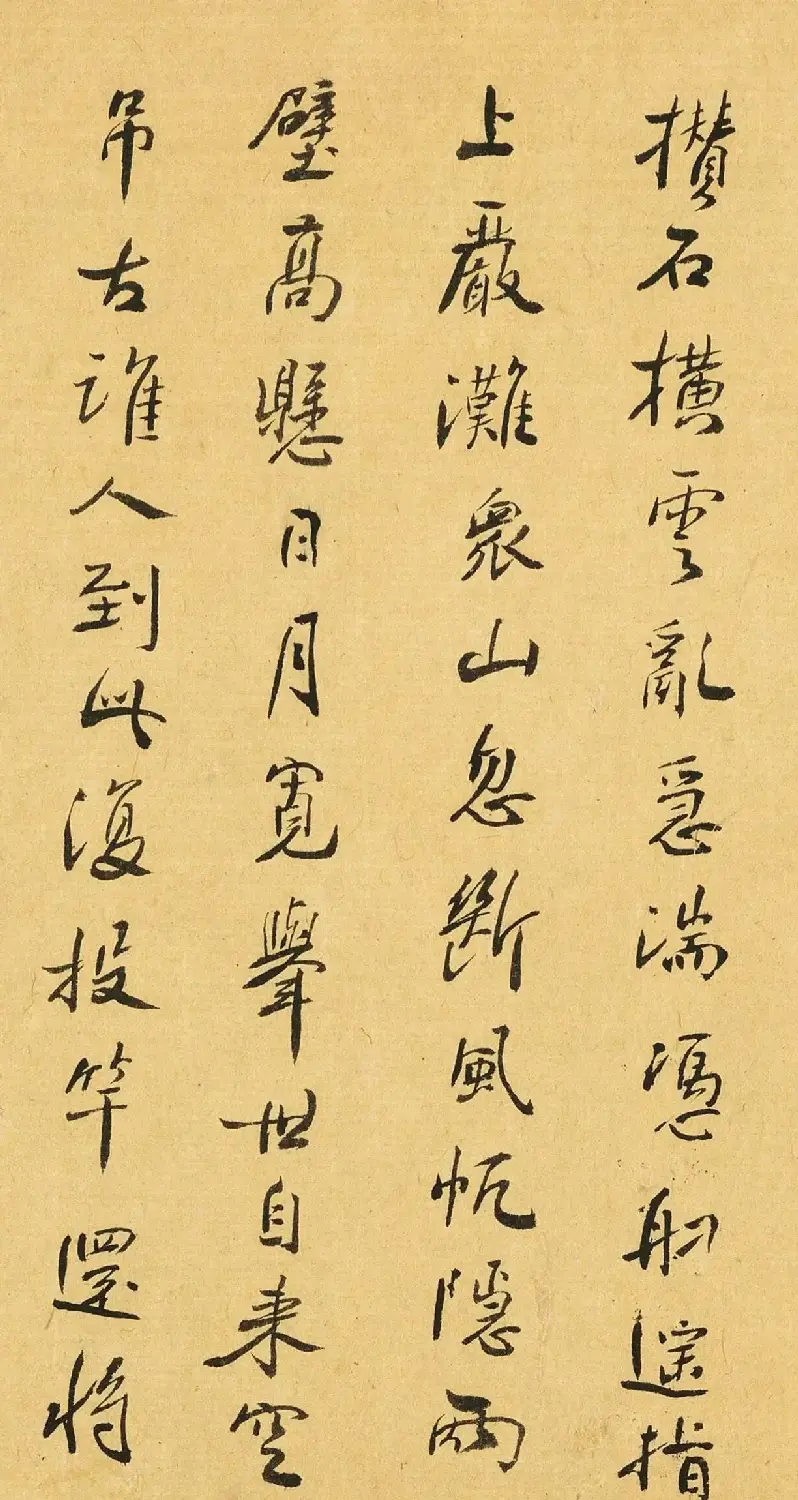 攢石橫雲亂急湍憑舠遥指
上嚴灘衆山忽斷風帆隱兩
壁高懸日月寬舉世自來空
弔古誰人到此復投竿還將